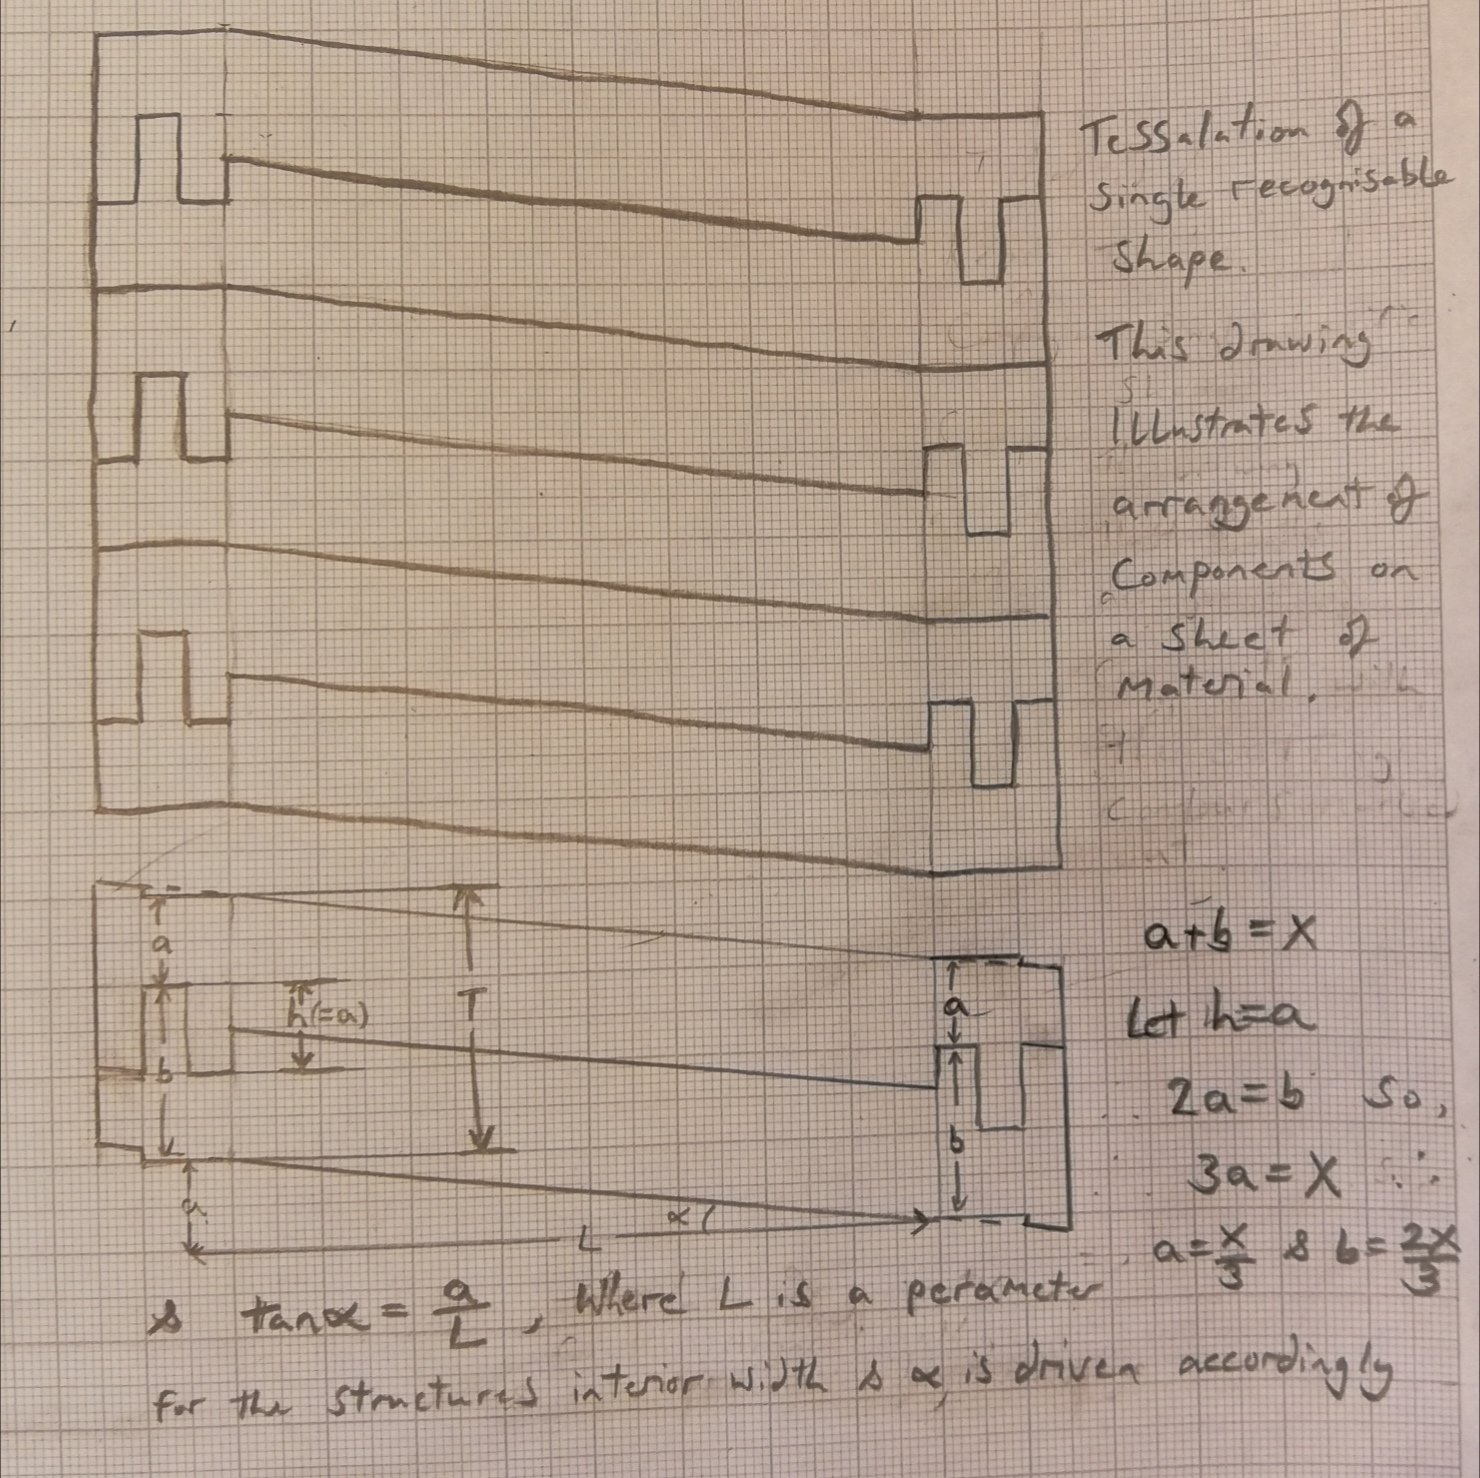 Tessalation of a
single recognisable
shape.
This drawing
illustrates the
arrangement of
components on
a sheet of
material.
a
h(=a)
T
b
a
L
α
a
b
a+b=X
Let h=a
2a=b so,
3a=X ∴
a=X/3 & b=2X/3
& tanα = a/L, where L is a perameter
for the structures interior width & α is driven accordingly